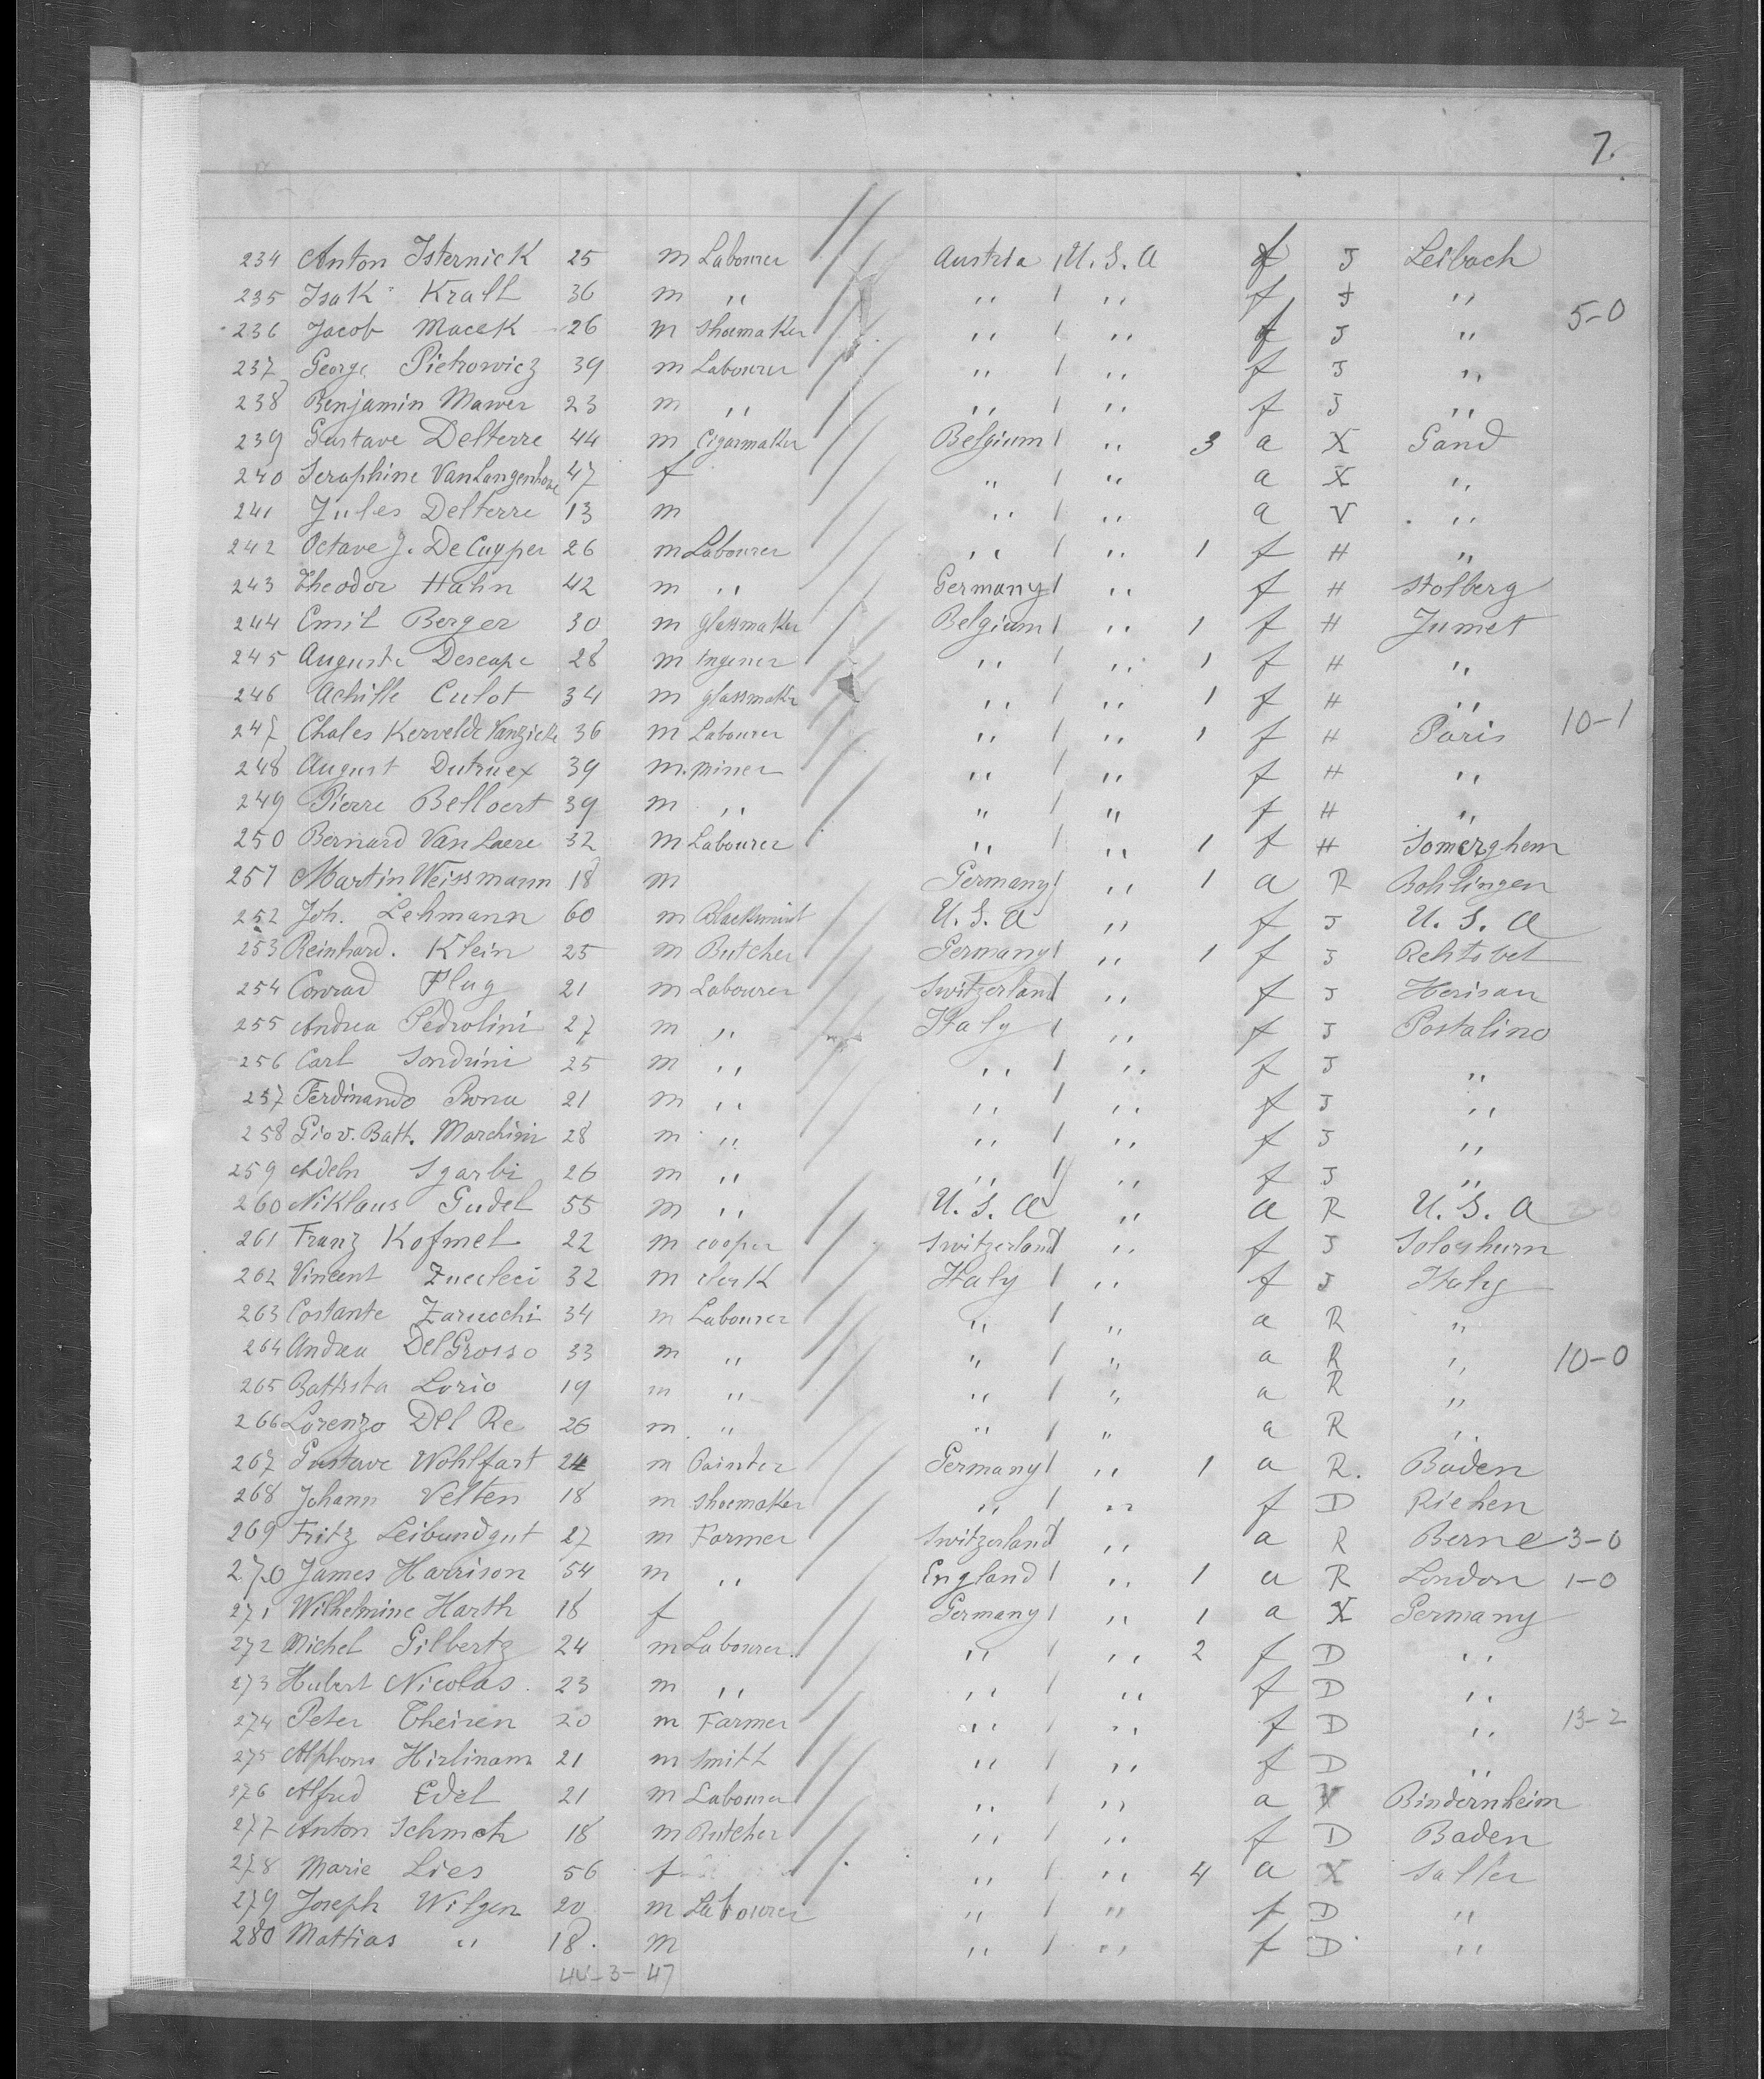 7.
234 Anton Isternick 25 m Labourer Austria U.S.A f J Leibach
235 Isak Krall 36 m ,, ,, ,, f J ,, 5-0
236 Jacob Macek 26 m Shoemaker ,, ,, f J ,,
237 George Pietrowicz 39 m Labourer ,, ,, f J ,,
238 Benjamin Mawer 23 m ,, ,, ,, f J ,,
239 Gustave Delterre 44 m Cigarmaker Belgium ,, 3 a X Gand
240 Seraphine VanLangenhove 47 f ,, ,, a X ,,
241 Jules Delterre 13 m ,, ,, a V ,,
242 Octave J. DeCuyper 26 m Labourer ,, ,, 1 f H ,,
243 Theodor Hahn 42 m ,, Germany ,, f H Stolberg
244 Emil Berger 30 m glassmaker Belgium ,, 1 f H Jumet
245 Auguste Descape 28 m Ingener ,, ,, 1 f H ,,
246 Achille Culot 34 m glassmaker ,, ,, 1 f H ,,
247 Chales 36 m Labourer ,, ,, 1 f H Paris 10-1
248 August Dutruex 39 m. miner ,, ,, f H ,,
249 Pierre Belloert 39 m ,, ,, ,, f H ,,
250 Bernard Van Laere 32 m Labourer ,, ,, 1 f H Somerghem
251 Martin Weissmann 18 m Germany ,, 1 a R Bohlingen
252 Joh. Lehmann 60 m Blacksmit U.S.A ,, f J U.S.A
253 Reinhard. Klein 25 m Butcher Germany ,, 1 f J Rehtobel
254 Conrad Plug 21 m Labourer Switzerland ,, f J Herisau
255 Andrea Pedrolini 27 m ,, Italy ,, f J Postalino
256 Carl Sondrini 25 m ,, ,, ,, f J ,,
257 Ferdinando Rona 21 m ,, ,, ,, f J ,,
258 Giov. Batt. Marchini 28 m ,, ,, ,, f J ,,
259 Adeln Sgarbi 26 m ,, ,, ,, f J ,,
260 Niklaus Gudel 55 m ,, U.S.A ,, a R U.S.A
261 Franz Kofmel 22 m cooper Switzerland ,, f J Sologhurn
262 Vincent Zucleci 32 m clerk Italy ,, f J Italy
263 Costante Zarucchi 34 m Labourer ,, ,, a R ,,
264 Andrea DelGrosso 33 m ,, ,, ,, a R ,, 10-0
265 Battista Lorio 19 m ,, ,, ,, a R ,,
266 Lorenzo Del Re 26 m. ,, ,, ,, a R ,,
267 Gustave Wohlfart 24 m Painter Germany ,, 1 a R. Baden
268 Johann Velten 18 m Shoemaker ,, ,, f D Riehen
269 Fritz Leibundgut 27 m Farmer Switzerland ,, a R Berne 3-0
270 James Harrison 54 m ,, England ,, 1 a R London 1-0
271 Wilhelmine Harth 18 f Germany ,, 1 a X Germany
272 Michel Gilbertz 24 m Labourer. ,, ,, 2 f D ,,
273 Hubert Nicolas. 23 m ,, ,, ,, f D ,,
274 Peter Theinen 20 m Farmer ,, ,, f D ,, 13-2
275 Alphons Hirlinam 21 m Smith ,, ,, f D ,,
276 Alfred Edel 21 m Labourer ,, ,, a V Bindernheim
277 Anton Schmch 18 m Butcher ,, ,, f D Baden
278 Marie Lies 56 f ,, ,, 4 a X Saller
279 Joseph Wilgen 20 m Labourer ,, ,, f D ,,
280 Mattias ,, 18. m ,, ,, f D ,,
44-3-47